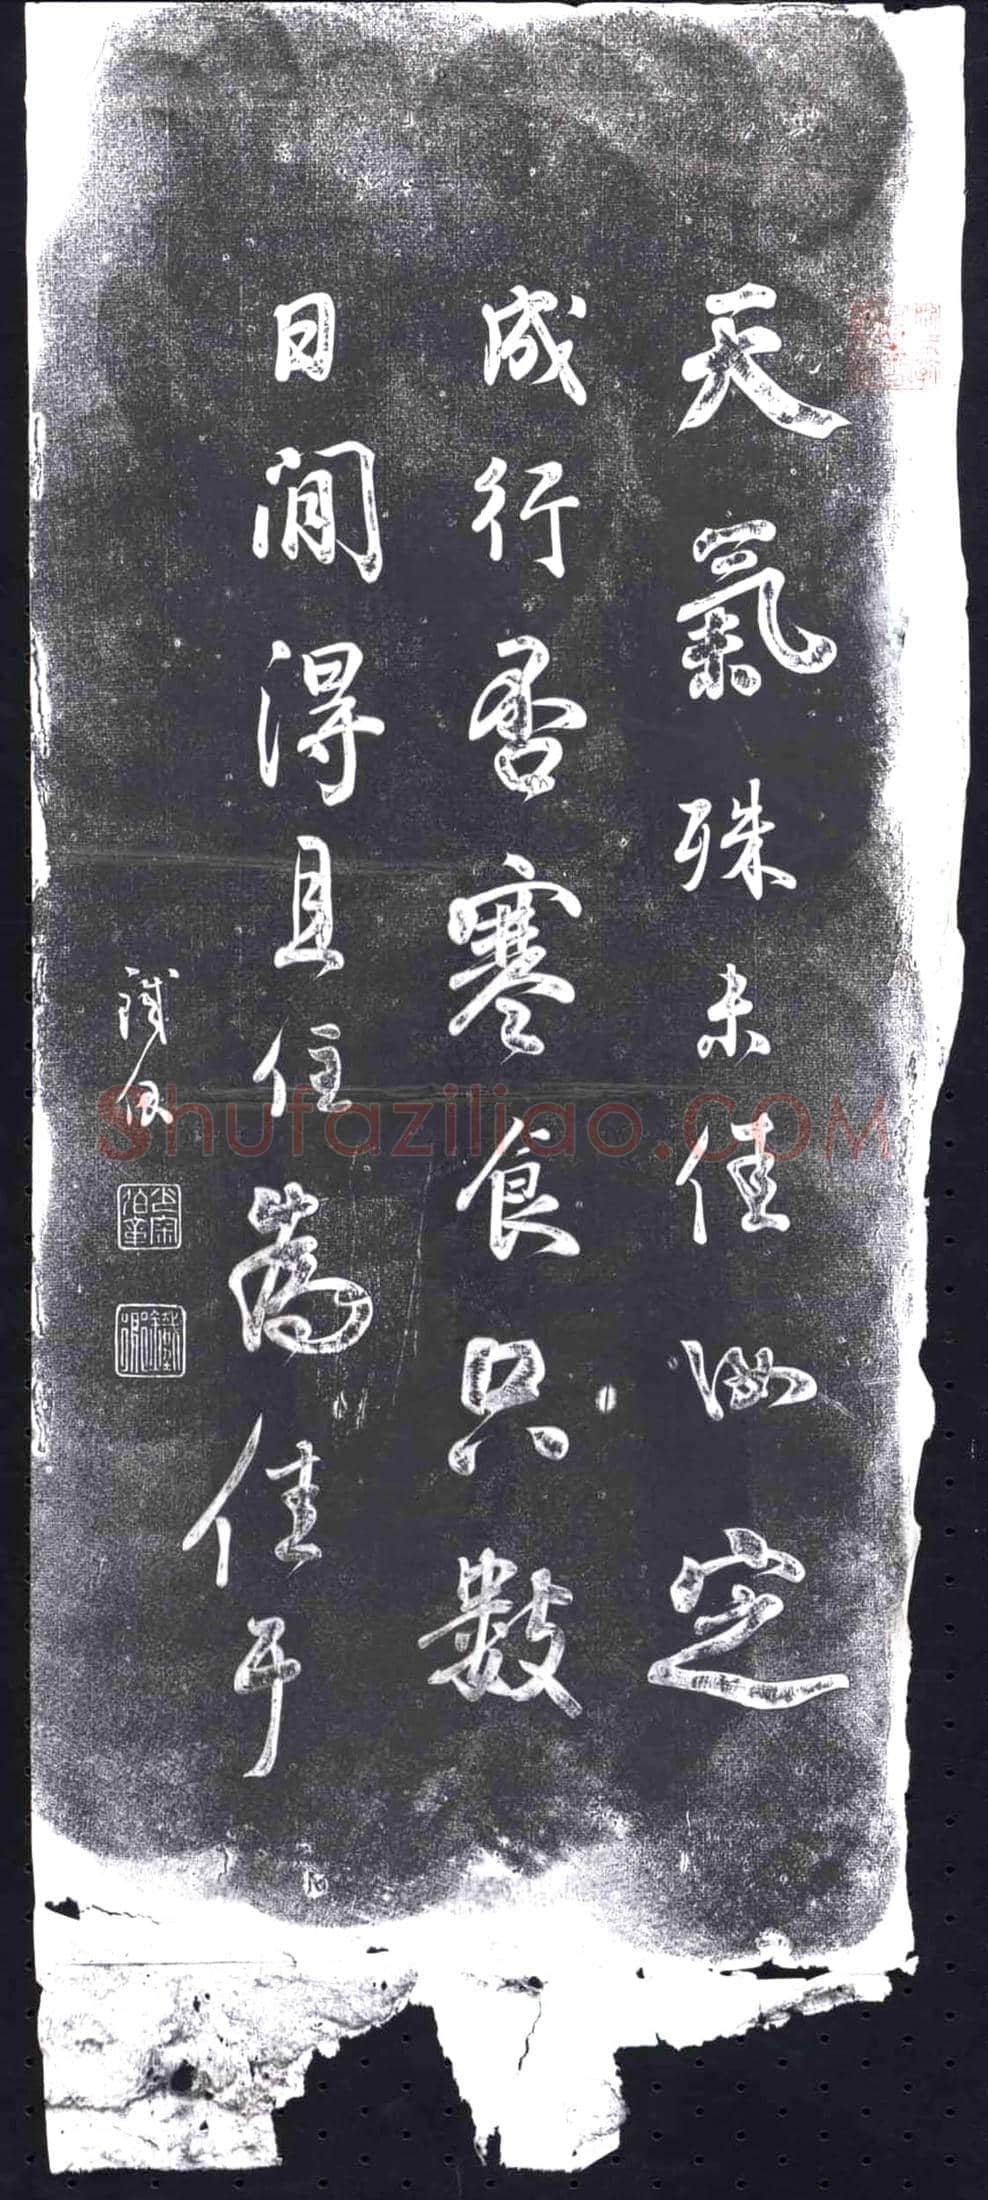 天氣殊未佳汝定
成行否寒食只數
日間得且住為佳耳
鐵保
Shufaziliao.COM